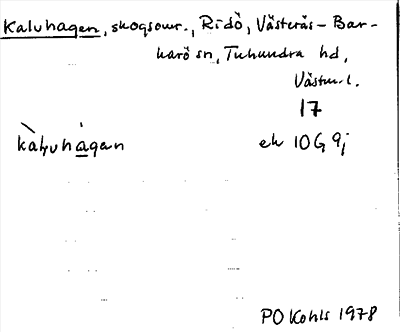 Kaluhagen, skogsomr., Ridö, Västerås-Bar-
karö sn, Tuhundra hd,
Västm.l.
17
kàḷuhàgan ek 10G 9j
PO Kohls 1978